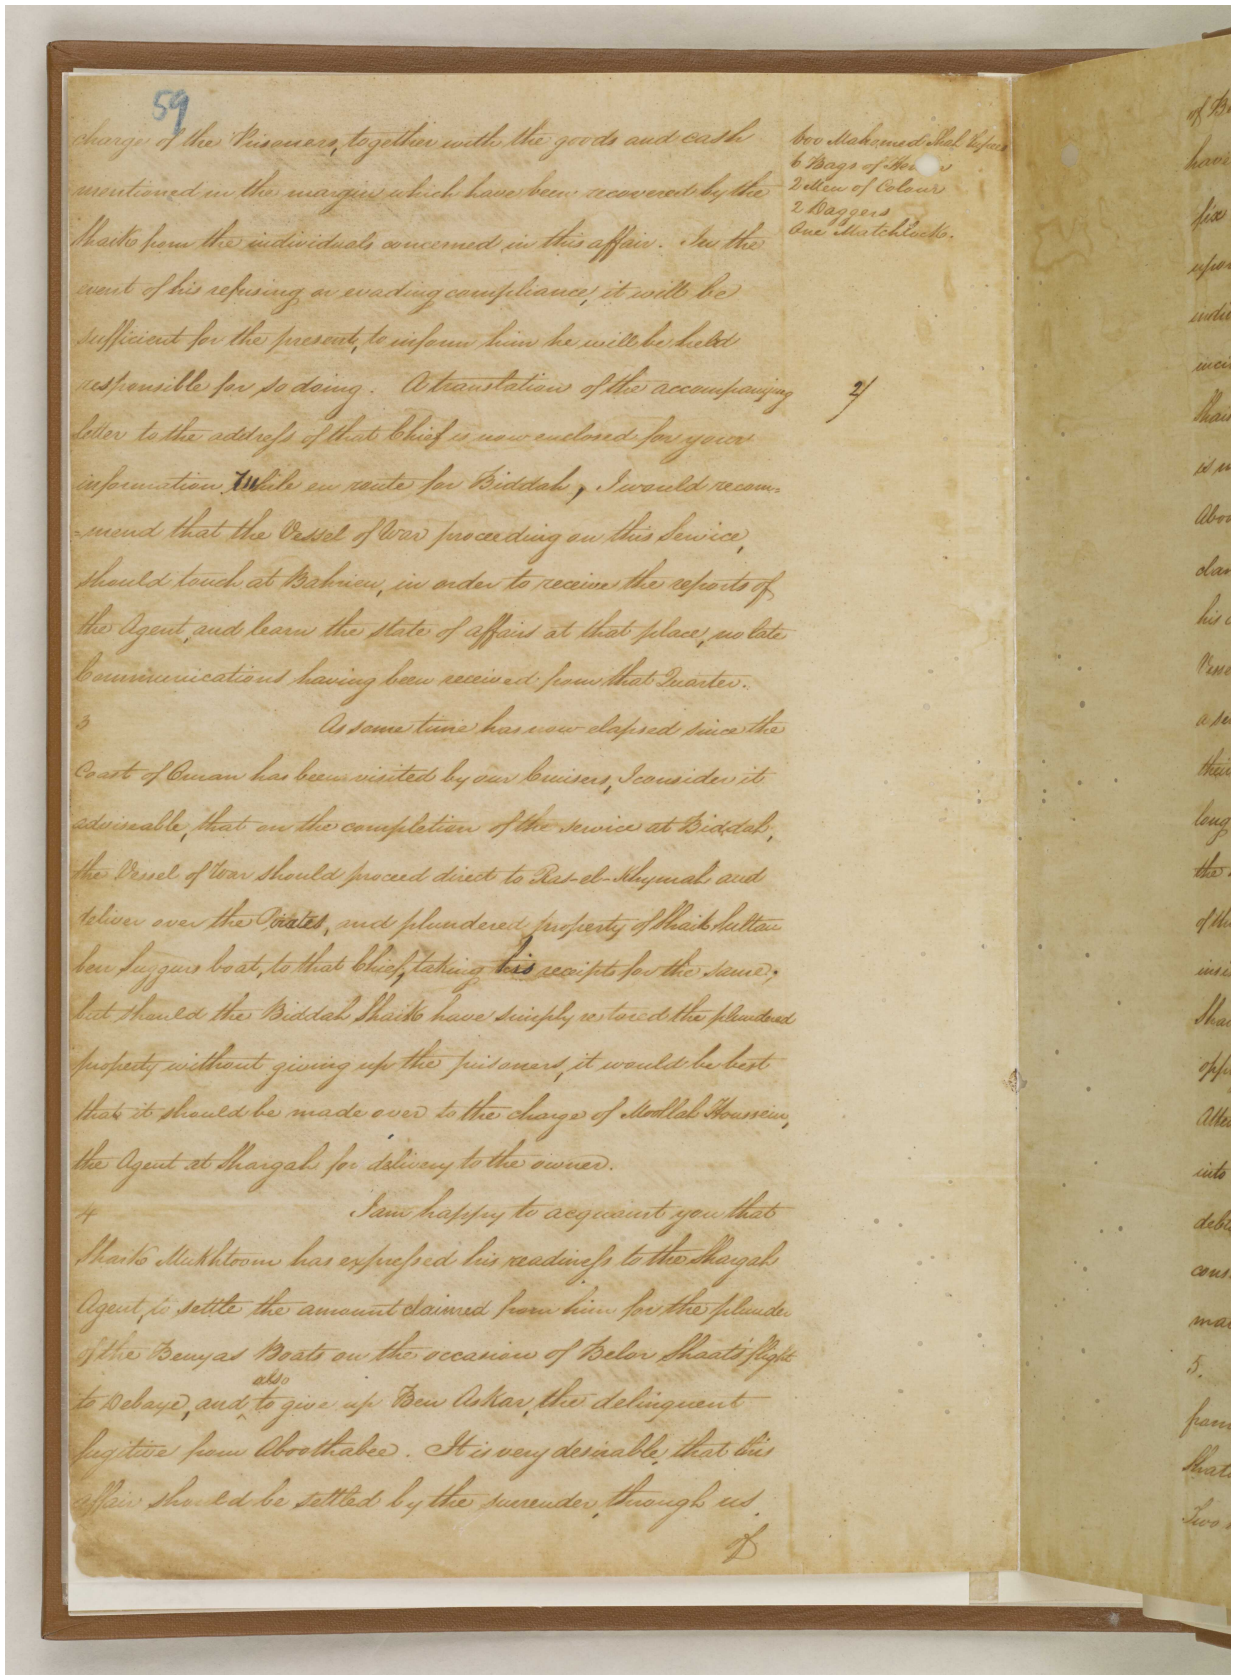 59
charge of the Prisoners, together with the goods and cash
mentioned in the margin which have been recovered by the
Shaik from the individuals concerned in this affair. In the
event of his refusing or evading compliance, it will be
sufficient for the present, to inform him he will be held
responsible for so doing. A translation of the accompanying
letter to the address of that Chief is now enclosed for your
information While en route for Biddah, I would recom=
=mend that the Vessel of War proceeding on this Service,
should touch at Bahrien, in order to receive the reports of
the Agent, and learn the state of affairs at that place, no late
Communications having been received from that Quarter.
600 Mahomed Shah Rupees
6 Bags of
2 Men of Colour
2 Daggers
One Matchlock.
2/
3 As some time has now elapsed since the
Coast of Oman has been visited by our Cruisers, I consider it
adviseable, that on the completion of the service at Biddah,
the Vessel of War should proceed direct to Ras-el-Khymah and
deliver over the Pirates, and plundered property of Shaik Sultan
ben Suggurs boat, to that Chief, taking his receipts for the same;
but should the Biddah Shaik have simply restored the plundered
property without giving up the prisoners, it would be best
that it should be made over to the charge of Moollah Houssein,
the Agent at Shargah for delivery to the owner.
4 I am happy to acquaint you that
Shaik Mukhtoom has expressed his readiness to the Shargah
Agent, to settle the amount claimed from him for the plunder
of the Benyas Boats on the occasion of Belor Shaats flight
to Debaye, and also to give up Ben Askar, the delinquent
fugitive from Aboothabee. It is very desirable, that this
affair should be settled by the surrender, through us,
of